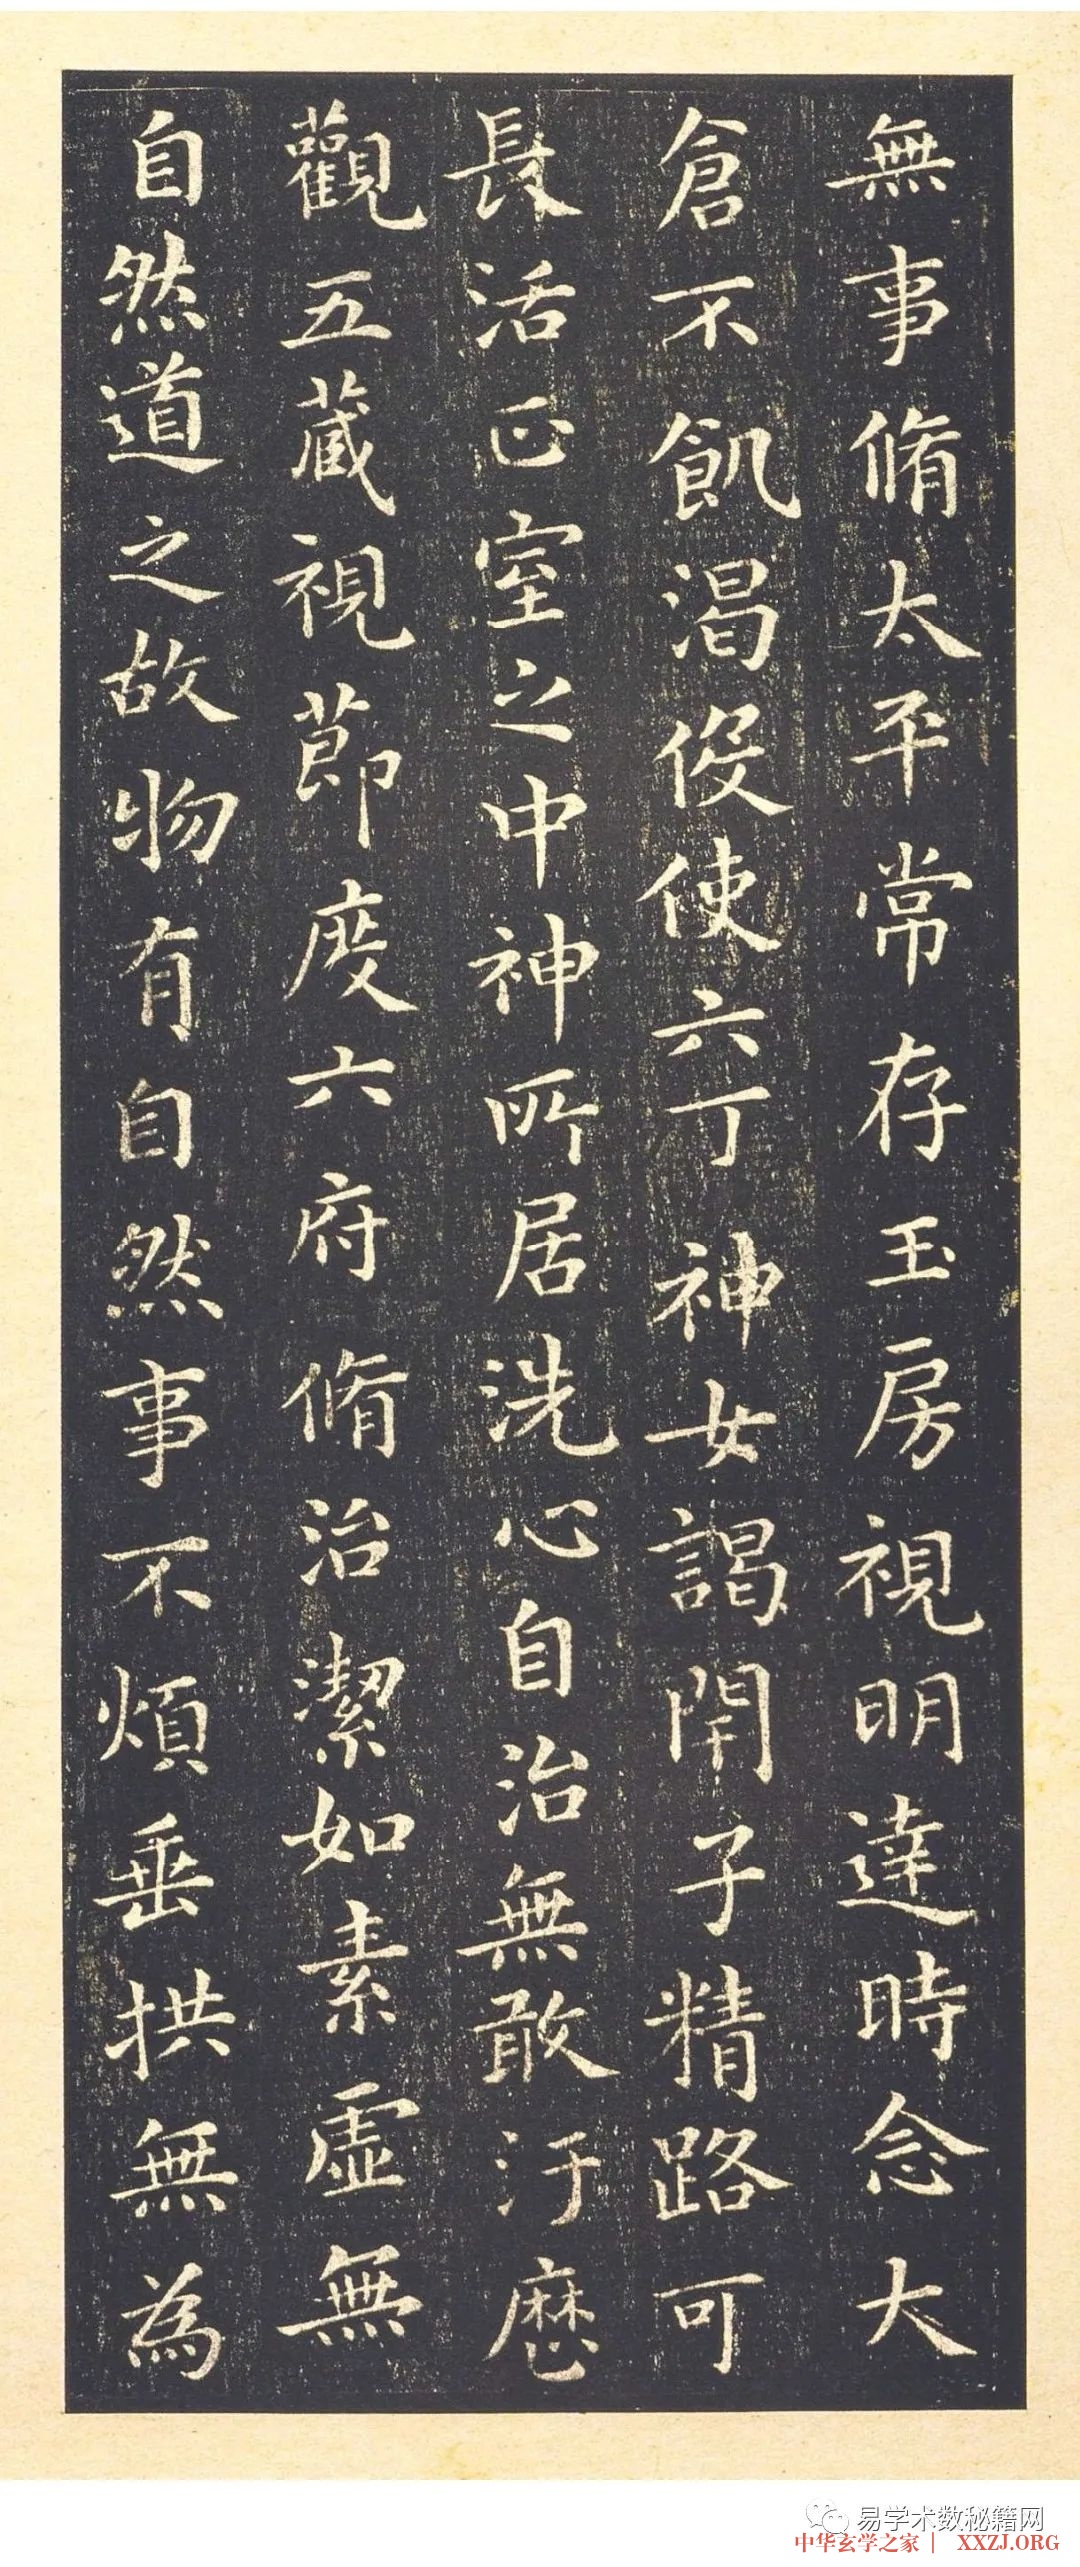 無事脩太平常存玉房視明達時念大
倉不飢渴伇使六丁神女謁閇子精路可
長活正室之中神所居洗心自治無敢汙
觀五藏視莭度六府脩治潔如素虛無
自然道之故物有自然事不煩垂拱無為
易学术数秘籍网
中华玄学之家 | XXZJ.ORG